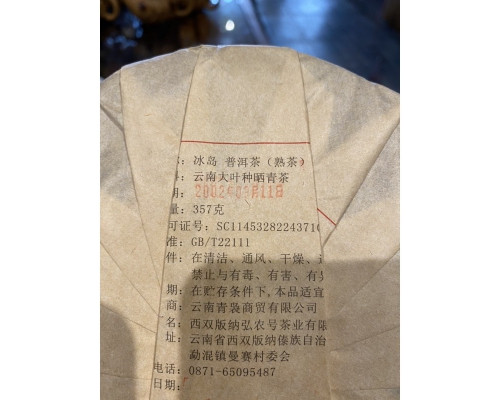 : 冰岛 普洱茶（熟茶）
: 云南大叶种晒青茶
期: 2002年03月11日
量: 357克
可证号: SC1145328224371
准: GB/T22111
件: 在清洁、通风、干燥、
禁止与有毒、有害、有
期: 在贮存条件下,本品适宜
商: 云南青袅商贸有限公司
名: 西双版纳弘农号茶业有限
址: 云南省西双版纳傣族自治
勐混镇曼赛村委会
电话: 0871-65095487
日期: